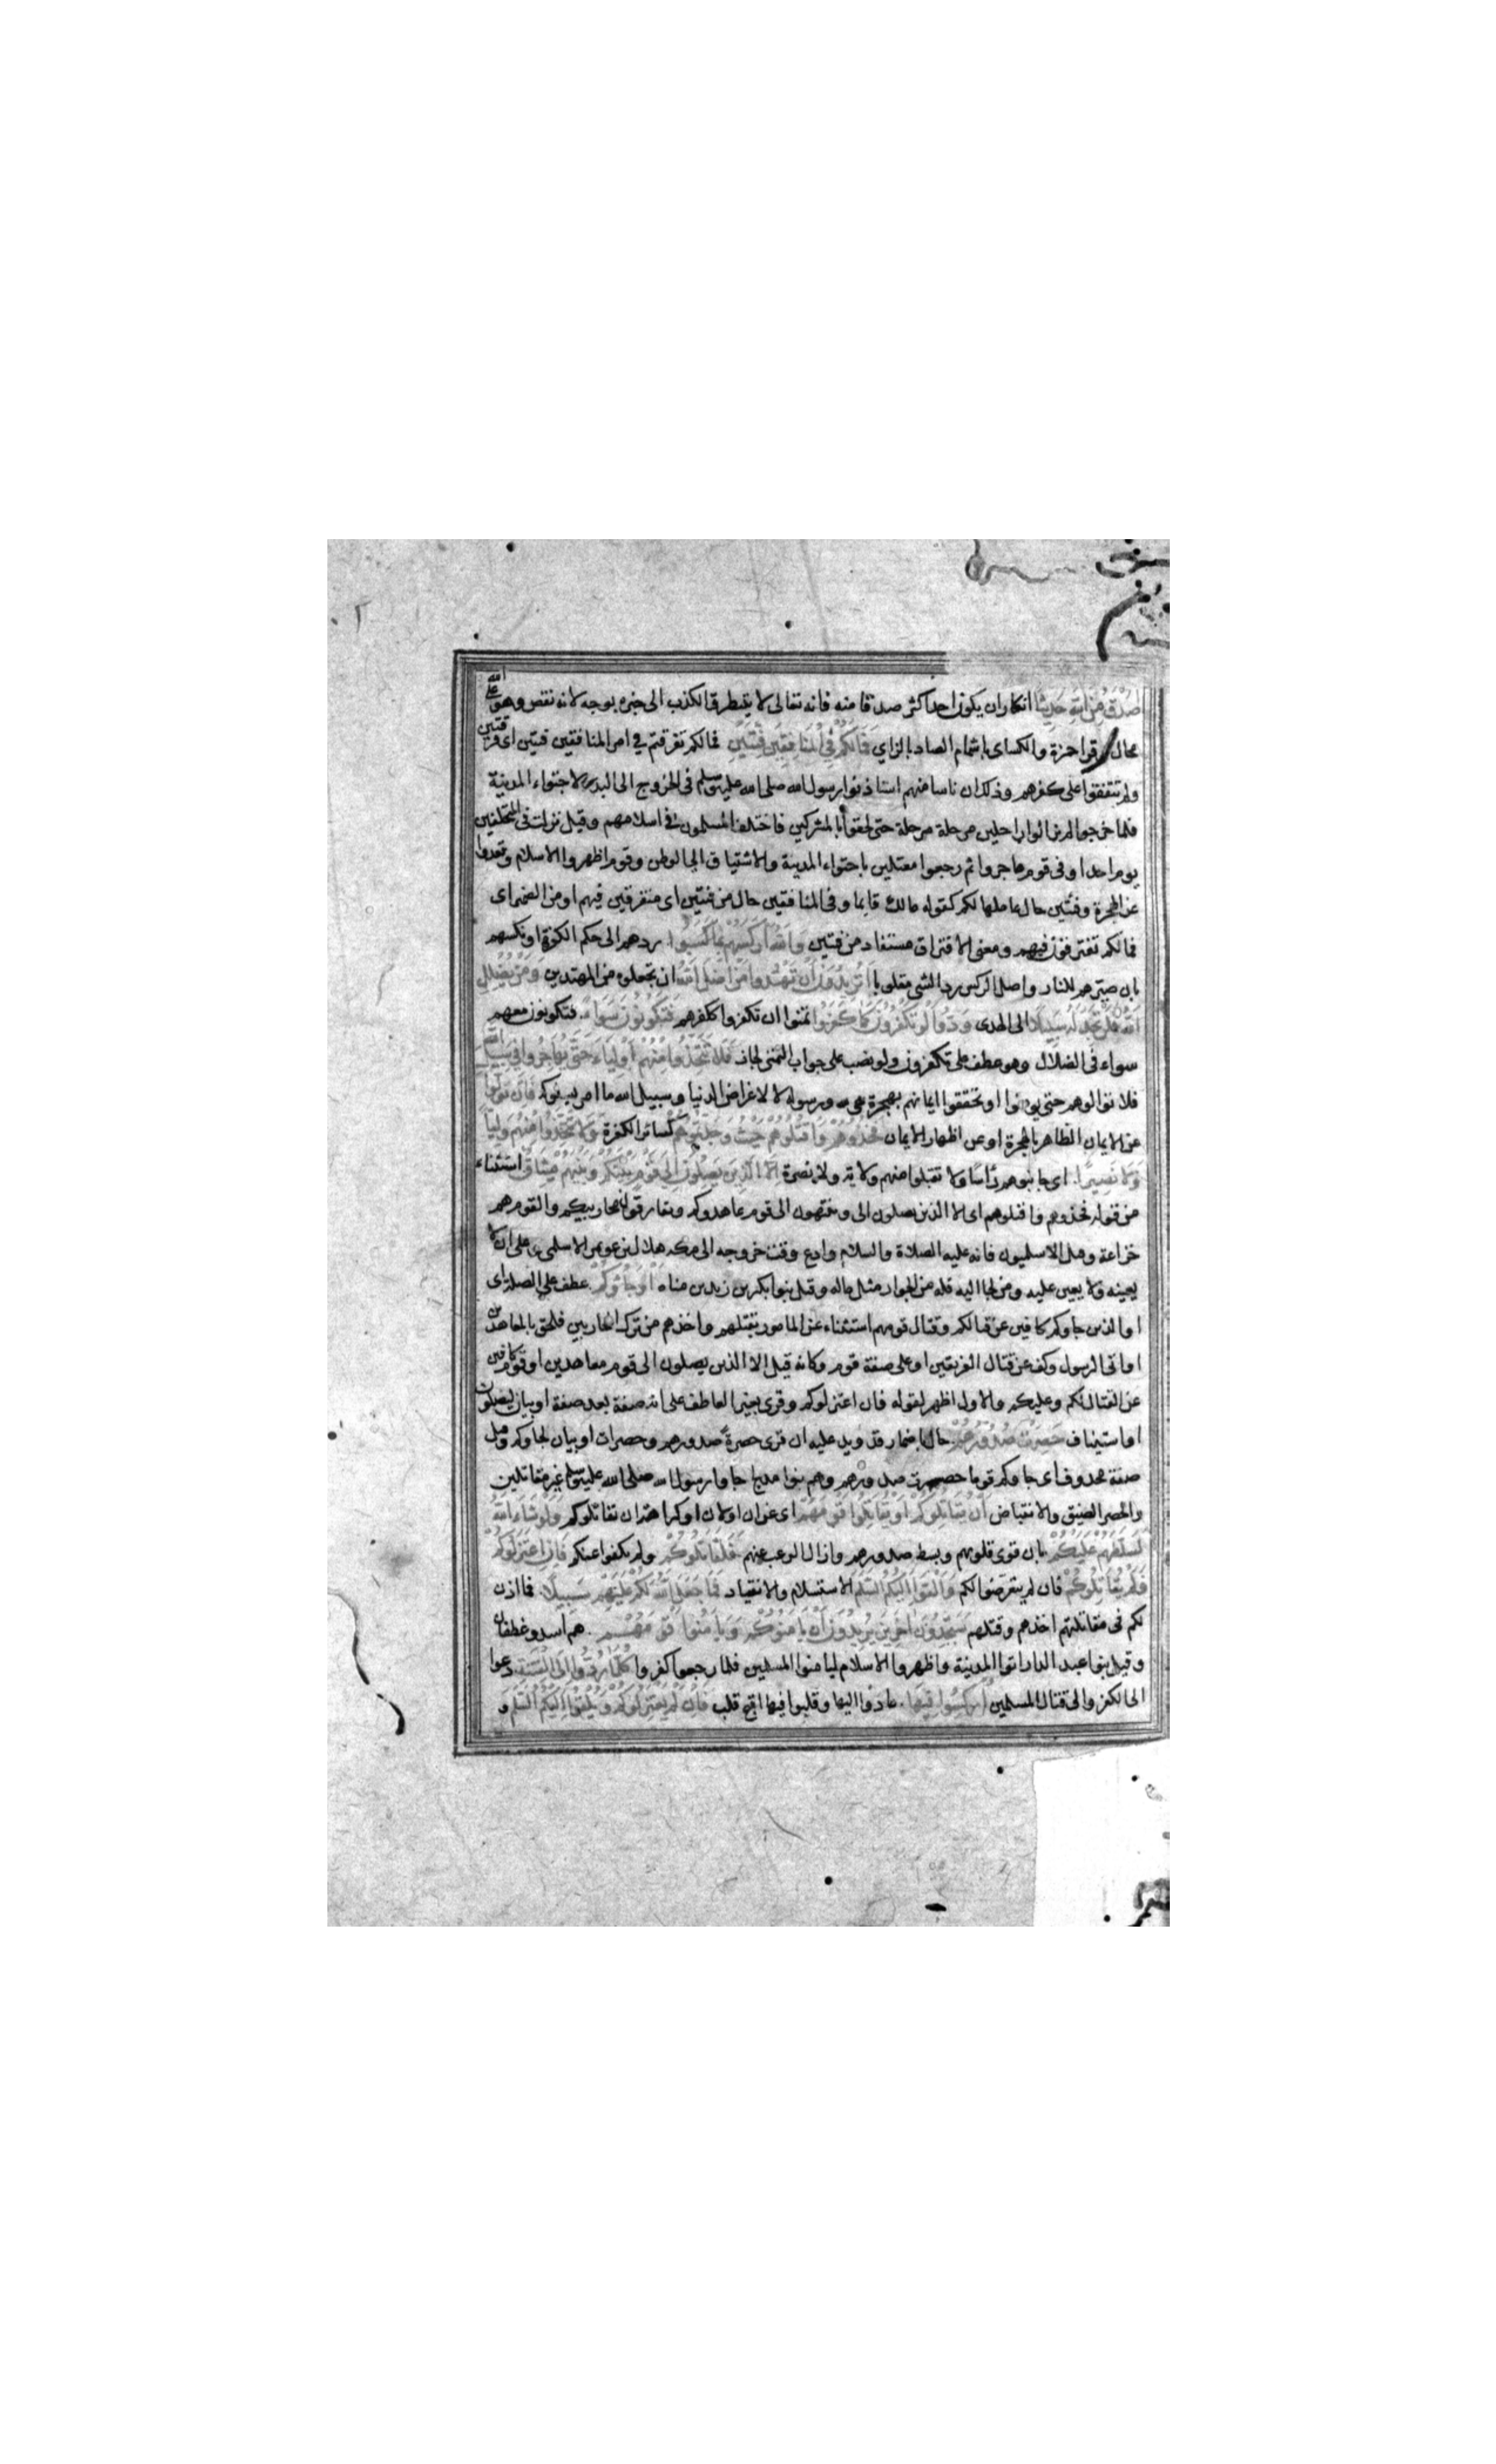 اَصْدَقُ مِنَ اللّٰهِ حَدِيثًا انكار ان يكون احد اكثر صدقا منه فانه تعالى لا يتطرق الكذب الى خبره بوجه لانه نقص وهو على الله
محال وقرا حمزة والكساى باشمام الصاد بالزاي فَمَا لَكُمْ فِي الْمُنَافِقِينَ فِئَتَيْنِ فمالكم تفرقتم في امر المنافقين فئتين اى فرقتين
ولم تتفقوا على كفرهم وذلك ان ناسا منهم استاذنوا رسول الله صلى الله عليه وسلم فى الخروج الى البدو لاجتواء المدينة
فلما خرجوا لم يزالوا راحلين مرحلة مرحلة حتى لحقوا بالمشركين فاختلف المسلمون فى اسلامهم وقيل نزلت فى المتخلفين
يوم احد او فى قوم هاجروا ثم رجعوا معتلين باجتواء المدينة والاشتياق الى الوطن وقوم اظهروا الاسلام وقعدوا
عن الهجرة وفئتين حال عاملها لكم كقوله مالك قايما وفى المنافقين حال من فئتين اى متفرقين فيهم او من الضمير اى
فمالكم تفترقون فيهم ومعنى الافتراق مستفاد من فئتين وَاللّٰهُ اَرْكَسَهُمْ بِمَا كَسَبُوا ردهم الى حكم الكفرة او نكسهم
بان صيرهم للنار واصل الركس رد الشى مقلوبا اَتُرِيدُونَ اَنْ تَهْدُوا مَنْ اَضَلَّ اللّٰهُ ان تجعلوه من المهتدين وَمَنْ يُضْلِلِ
اللّٰهُ فَلَنْ تَجِدَ لَهُ سَبِيلًا الى الهدى وَدُّوا لَوْ تَكْفُرُونَ كَمَا كَفَرُوا تمنوا ان تكفروا ككفرهم فَتَكُونُونَ سَوَاءً فتكونون معهم
سواء فى الضلال وهو عطف على تكفرون ولو نصب على جواب التمنى لجاز فَلَا تَتَّخِذُوا مِنْهُمْ اَوْلِيَاءَ حَتَّى يُهَاجِرُوا فِي سَبِيلِ اللّٰهِ
فلا توالوهم حتى يومنوا او تحققوا ايمانهم بهجرة هى لله ورسوله لا لاغراض الدنيا وسبيل الله ما امر بسلوكه فَاِنْ تَوَلَّوْا
عن الايمان الظاهر بالهجرة او عن اظهار الايمان فَخُذُوهُمْ وَاقْتُلُوهُمْ حَيْثُ وَجَدْتُمُوهُمْ كسائر الكفرة وَلَا تَتَّخِذُوا مِنْهُمْ وَلِيًّا
وَلَا نَصِيرًا اى جانبوهم رأسا ولا تقبلوا منهم ولاية ولا نصرة اِلَّا الَّذِينَ يَصِلُونَ اِلَى قَوْمٍ بَيْنَكُمْ وَبَيْنَهُمْ مِيثَاقٌ استثناء
من قوله فخذوهم واقتلوهم اى الا الذين يصلون الى وينتهون الى قوم عاهدوكم ويفارقون محاربيكم والقوم هم
خزاعة وقيل الاسلميون فانه عليه الصلاة والسلام وادع وقت خروجه الى مكه هلال بن عويمر الاسلمى على ان لا
يعينه ولا يعين عليه ومن لجا اليه فله من الجوار مثل ماله وقيل بنو بكر بن زيد بن مناه اَوْ جَاءُوكُمْ عطف على الصلة اى
او الذين جاوكم كافين عن قتالكم وقتال قومهم استثناء عن المامور بقتلهم واخذهم من ترك المحاربين فلحق بالمعاهدين
او اتى الرسول وكف عن قتال الفريقين او على صفة قوم وكانه قيل الا الذين يصلون الى قوم معاهدين او قوم كافين
عن القتال لكم وعليكم والاول اظهر لقوله فان اعتزلوكم وقرى بغير العاطف على انه صفة بعد صفة او بيان ليصلون
او استيناف حَصِرَتْ صُدُورُهُمْ حال باضمار قد ويدل عليه ان قرى حصرةً صدورهم وحصرات او بيان لجاوكم وقيل
صفة محذوف اى جاوكم قوما حصرت صدورهم وهم بنوا مدلج جاوا رسول الله صلى الله عليه وسلم غير مقاتلين
والحصر الضيق والانقباض اَنْ يُقَاتِلُوكُمْ اَوْ يُقَاتِلُوا قَوْمَهُمْ اى عن ان او لان او كراهة ان يقاتلوكم وَلَوْ شَاءَ اللّٰهُ
لَسَلَّطَهُمْ عَلَيْكُمْ بان قوى قلوبهم وبسط صدورهم وازال الرعب عنهم فَلَقَاتَلُوكُمْ ولم يكفوا عنكم فَاِنِ اعْتَزَلُوكُمْ
فَلَمْ يُقَاتِلُوكُمْ فان لم يتعرضوا لكم وَاَلْقَوْا اِلَيْكُمُ السَّلَمَ الاستسلام والانقياد فَمَا جَعَلَ اللّٰهُ لَكُمْ عَلَيْهِمْ سَبِيلًا فما اذن
لكم فى مقاتلتهم اخذهم وقتلهم سَتَجِدُونَ اٰخَرِينَ يُرِيدُونَ اَنْ يَأْمَنُوكُمْ وَيَأْمَنُوا قَوْمَهُمْ هم اسد وغطفان
وقيل بنوا عبد الدار اتوا المدينة واظهروا الاسلام ليامنوا المسلمين فلما رجعوا كفروا كُلَّمَا رُدُّوا اِلَى الْفِتْنَةِ دعوا
الى الكفر والى قتال المسلمين اُرْكِسُوا فِيهَا عادوا اليها وقلبوا فيها اقبح قلب فَاِنْ لَمْ يَعْتَزِلُوكُمْ وَيُلْقُوا اِلَيْكُمُ السَّلَمَ و